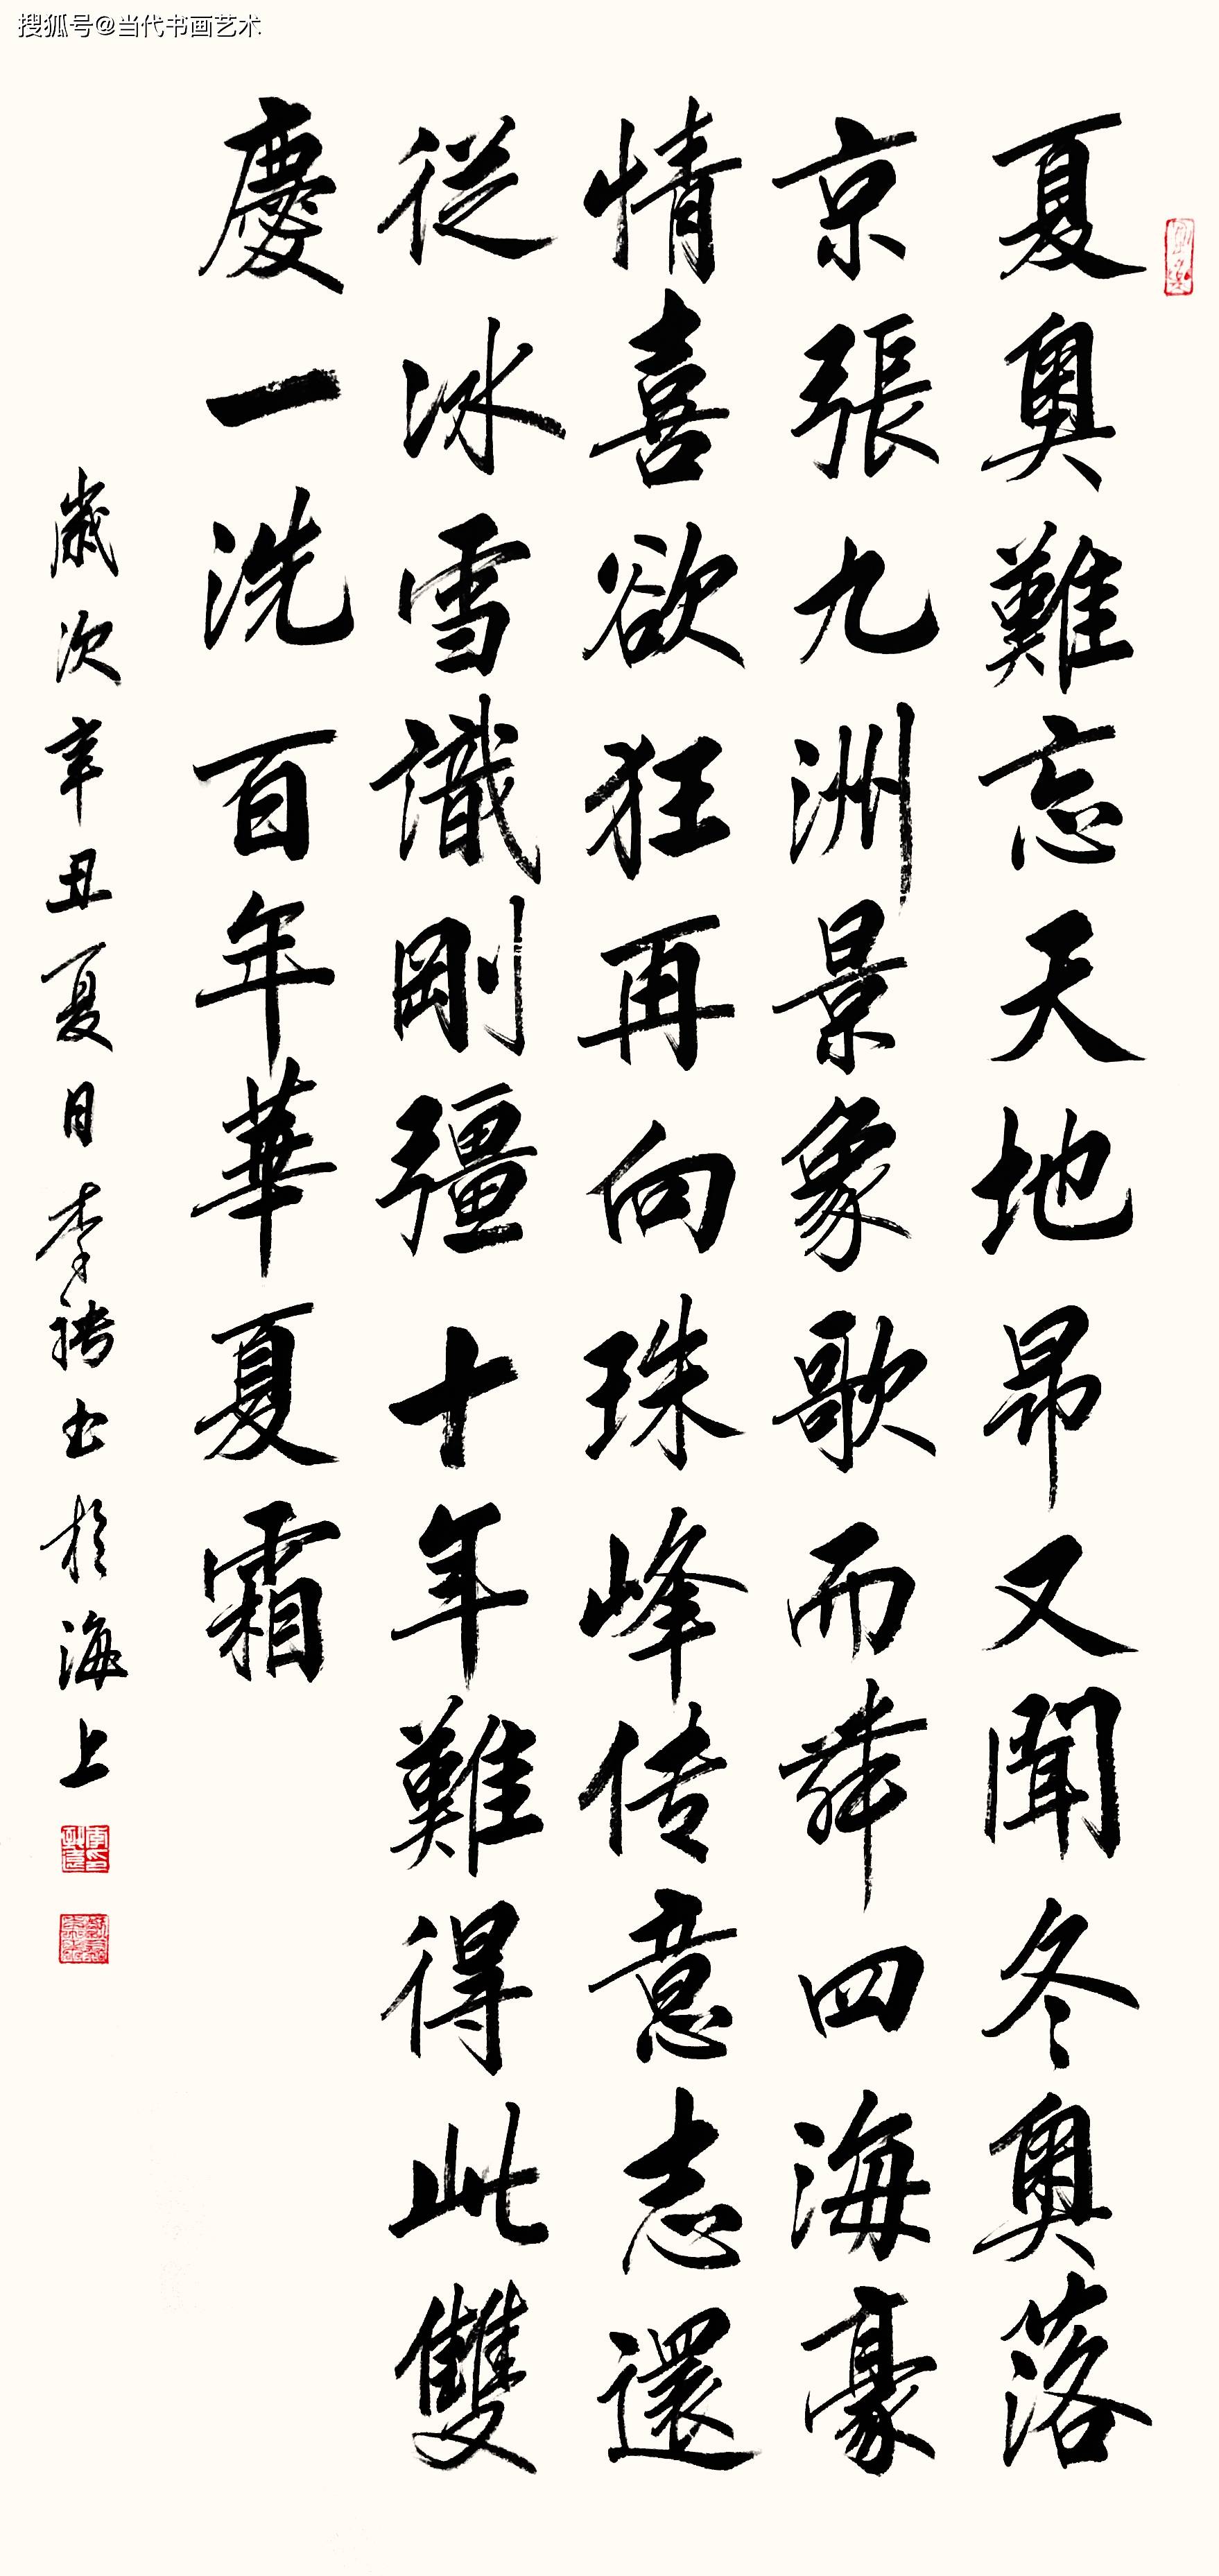 搜狐号@当代书画艺术
夏奥難忘天地昂又聞冬奥落
京張九洲景象歌而舞四海豪
情喜欲狂再向珠峰传意志還
從冰雪識剛彊十年難得此雙
慶一洗百年華夏霜
歲次辛丑夏月李骋书於海上